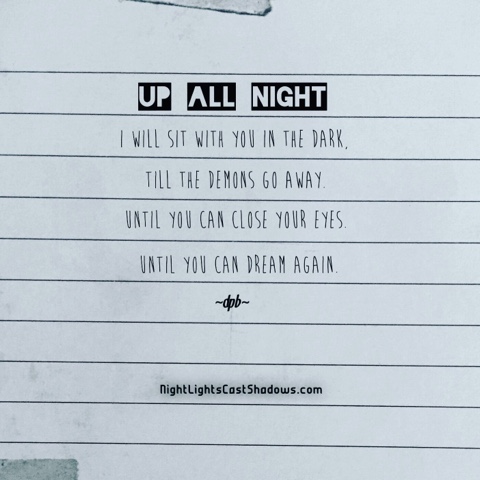 UP ALL NIGHT
I WILL SIT WITH YOU IN THE DARK,
TILL THE DEMONS GO AWAY.
UNTIL YOU CAN CLOSE YOUR EYES.
UNTIL YOU CAN DREAM AGAIN.
~dpb~
NightLightsCastShadows.com